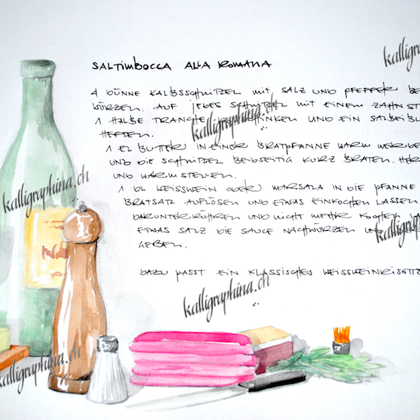 SALTIMBOCCA ALLA ROMANA
4 DÜNNE KALBSSCHNITZEL MIT SALZ UND PFEFFER BE
WÜRZEN. AUF JEDES SCHNITZEL MIT EINEM ZAHNST
1 HALBE TRANCHE SCHINKEN UND EIN SALBEIBL
HEFTEN.
1 EL BUTTER IN EINER BRATPFANNE WARM WERDE
UND DIE SCHNITZEL BEIDSEITIG KURZ BRATEN. HE
UND WARM STELLEN.
1 DL WEISSWEIN ODER MARSALA IN DIE PFANNE
BRATSATZ AUFLÖSEN UND ETWAS EINKOCHEN LASSEN
DARUNTERRÜHREN UND NICHT MEHR KOCHE
ETWAS SALZ DIE SAUCE NACHWÜRZEN U
GEBEN.
DAZU PASST EIN KLASSISCHES WEISSWEINRISOTTO
kalligraphina.ch
kalligraphina.ch
kalligraphina.ch
kalligraphina.ch